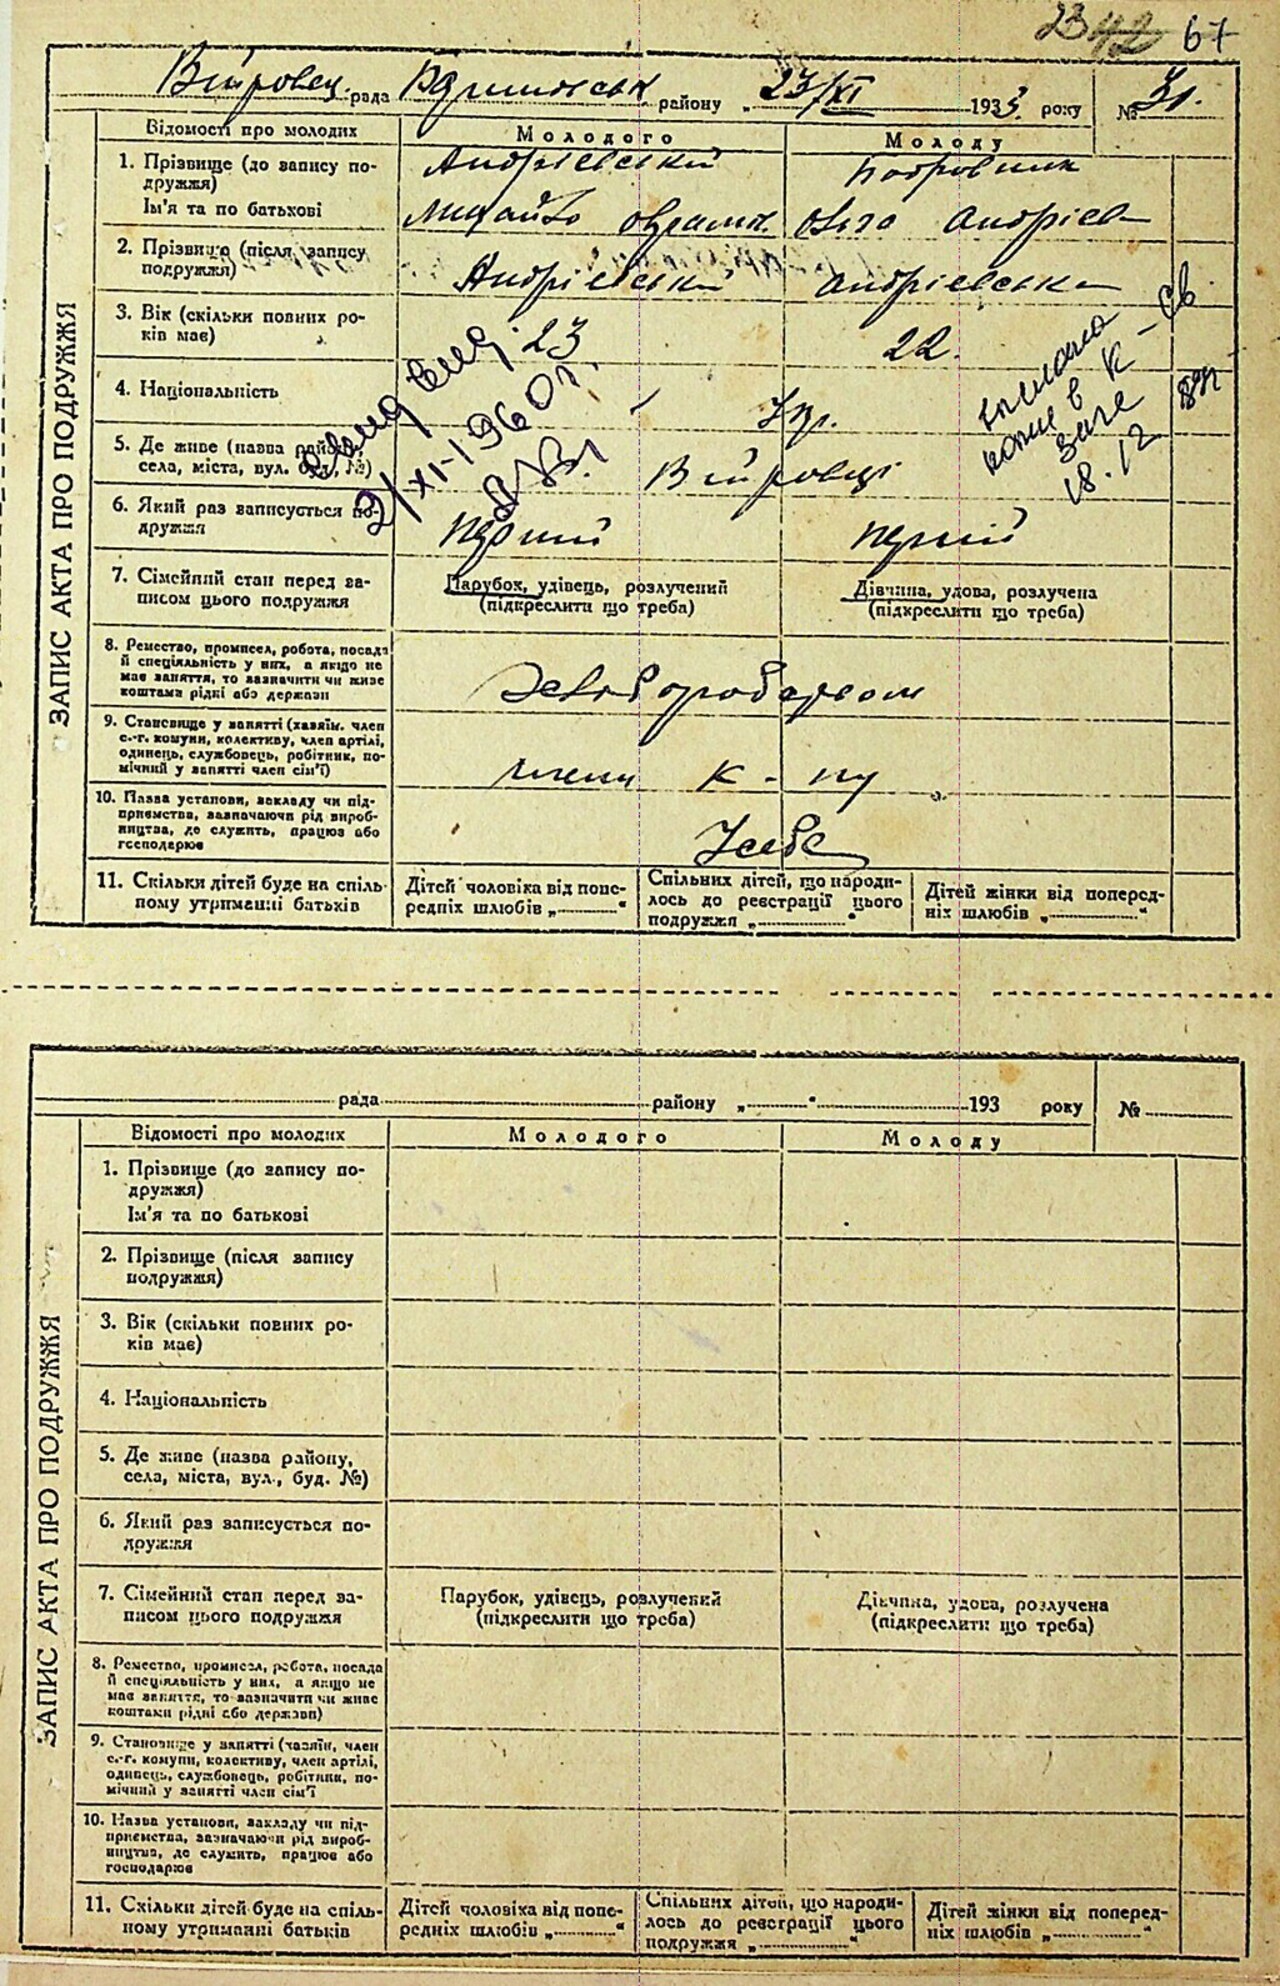 23 42 67
рада району 23/XI 1933 року № 31.
ЗАПИС АКТА ПРО ПОДРУЖЖЯ
Відомості про молодих Молодого Молоду
1. Прізвище (до запису по-
дружжя)
Андрієвський
Ім'я та по батькові
Михайло Ольга Андрієв
2. Прізвище (після запису
подружжя)
Андрієвський Андрієвська
3. Вік (скільки повних ро-
ків має)
23 22.
4. Національність
Укр.
5. Де живе (назва району,
села, міста, вул. буд. №)
Війровці
6. Який раз записується по-
дружжя
перший перший
7. Сімейний стан перед за-
писом цього подружжя
Парубок, удівець, розлучений
(підкреслити що треба)
Дівчина, удова, розлучена
(підкреслити що треба)
8. Ремество, промисел, робота, посада
й спеціяльність у них, а якщо не
має заняття, то зазначити чи живе
коштами рідні або держави
9. Становище у занятті (хазяїн, член
с.-г. комуни, колективу, член артілі,
одинець, службовець, робітник, по-
мічний у занятті член сім'ї)
члени к-пу
10. Назва установи, закладу чи під-
приємства, зазначаючи рід вироб-
ництва, де служить, працює або
господарює
У себе
11. Скільки дітей буде на спіль-
ному утриманні батьків
Дітей чоловіка від попе-
редніх шлюбів „ “
Спільних дітей, що народи-
лось до реєстрації цього
подружжя „ “
Дітей жінки від поперед-
ніх шлюбів „ “
21/XI-1960 г.
18.12
рада району „ “ 193 року №
ЗАПИС АКТА ПРО ПОДРУЖЖЯ
Відомості про молодих Молодого Молоду
1. Прізвище (до запису по-
дружжя)
Ім'я та по батькові
2. Прізвище (після запису
подружжя)
3. Вік (скільки повних ро-
ків має)
4. Національність
5. Де живе (назва району,
села, міста, вул., буд. №)
6. Який раз записується по-
дружжя
7. Сімейний стан перед за-
писом цього подружжя
Парубок, удівець, розлучений
(підкреслити що треба)
Дівчина, удова, розлучена
(підкреслити що треба)
8. Ремество, промисел, робота, посада
й спеціяльність у них, а якщо не
має заняття, то зазначити чи живе
коштами рідні або держави)
9. Становище у занятті (хазяїн, член
с.-г. комуни, колективу, член артілі,
одинець, службовець, робітник, по-
мічний у занятті член сім'ї
10. Назва установи, закладу чи під-
приємства, зазначаючи рід вироб-
ництва, де служить, працює або
господарює
11. Скільки дітей буде на спіль-
ному утриманні батьків
Дітей чоловіка від попе-
редніх шлюбів „ “
Спільних дітей, що народи-
лось до реєстрації цього
подружжя „ “
Дітей жінки від поперед-
ніх шлюбів „ “